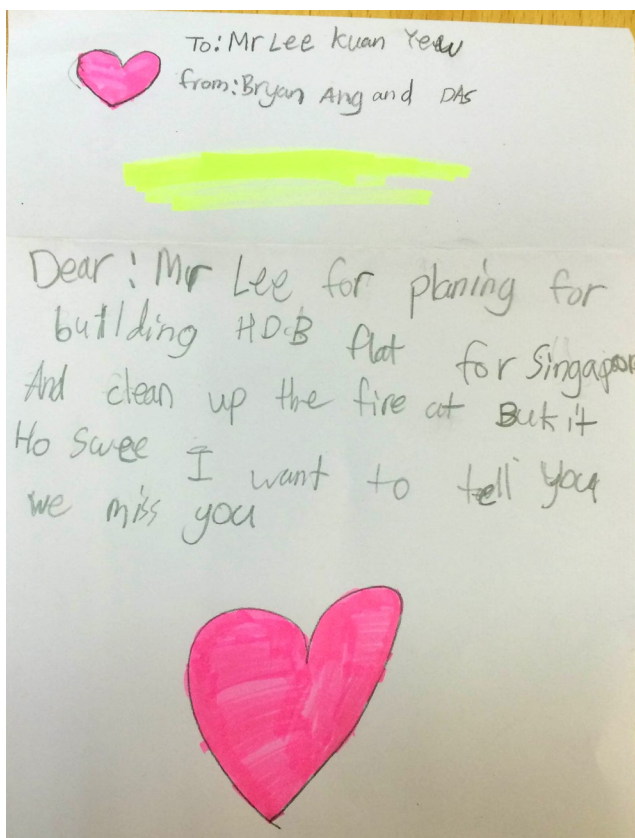 To: Mr Lee Kuan Yew
from: Bryan Ang and DAS
Dear: Mr Lee for planing for
building HDB flat for Singapor
And clean up the fire at Bukit
Ho Swee I want to tell you
we miss you